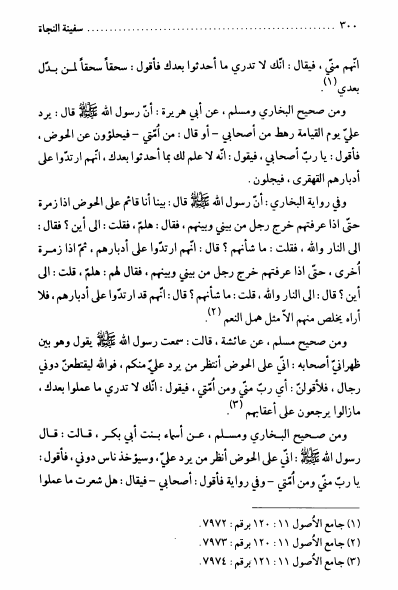 ٣٠٠ ........................................ سفينة النجاة
انّهم منّي ، فيقال : انّك لا تدري ما أحدثوا بعدك فأقول : سحقاً سحقاً لمـن بـدّل
بعدي(١).
ومن صحيح البخاري ومسلم ، عن أبي هريرة : أنّ رسول الله ﷺ قال : يرد
عليّ يوم القيامة رهط من أصحابي – أو قال : من أُمّتي – فيحلؤون عن الحوض ،
فأقول : يا ربّ أصحابي ، فيقول : انّه لا علم لك بما أحدثوا بعدك ، انّهم ارتدّوا على
أدبارهم القهقرى ، فيجلون .
وفي رواية البخاري : أنّ رسول الله ﷺ قال : بينا أنا قائم على الحوض اذا زمرة
حتّى اذا عرفتهم خرج رجل من بيني وبينهم ، فقال : هلمّ ، فقلت : الى أين ؟ فقال :
الى النار والله ، فقلت : ما شأنهم ؟ قال : انّهم ارتدّوا على أدبارهم ، ثمّ اذا زمـرة
أُخرى ، حتّى اذا عرفتهم خرج رجل من بيني وبينهم ، فقال لهم : هلمّ ، قلت : الى
أين ؟ قال : الى النار والله ، قلت : ما شأنهم ؟ قال : انّهم قد ارتدّوا على أدبارهم ، فلا
أراه يخلص منهم الاّ مثل همل النعم(٢).
ومن صحيح مسلم ، عن عائشة ، قالت : سمعت رسول الله ﷺ يقول وهو بين
ظهرانيّ أصحابه : انّي على الحوض أنتظر من يرد عليّ منكم ، فوالله ليقتطعنّ دوني
رجال ، فلأقولنّ : أي ربّ منّي ومن أُمّتي ، فيقول : انّك لا تدري ما عملوا بعدك ،
مازالوا يرجعون على أعقابهم(٣).
ومن صـحيح البـخاري ومسـلم ، عـن أسماء بـنت أبي بكـر ، قـالت : قـال
رسول الله ﷺ : انّي على الحوض أنظر من يرد عليّ ، وسيؤخذ ناس دوني ، فأقول :
يا ربّ منّي ومن أُمّتي – وفي رواية فأقول : أصحابي – فيقال : هل شعرت ما عملوا
(١) جامع الأُصول ١١ : ١٢٠ برقم : ٧٩٧٢ .
(٢) جامع الأُصول ١١ : ١٢٠ برقم : ٧٩٧٣ .
(٣) جامع الأُصول ١١ : ١٢١ برقم : ٧٩٧٤ .